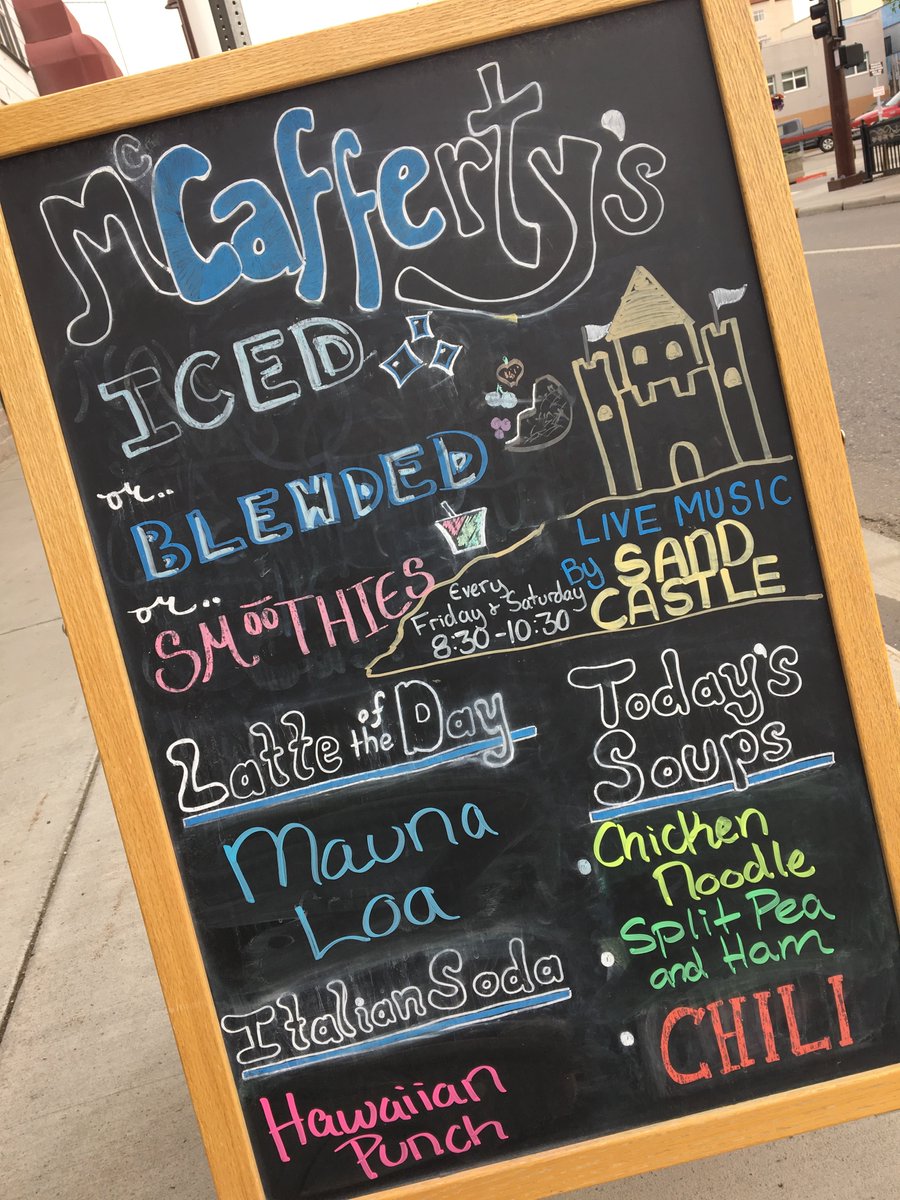 McCafferty's
ICED
or..
BLENDED
or..
SMOOTHIES
LIVE MUSIC
By SAND
CASTLE
Every
Friday & Saturday
8:30-10:30
Latte of the Day
Mauna
Loa
Italian Soda
Hawaiian
Punch
Today's
Soups
Chicken
Noodle
Split Pea
and Ham
CHILI